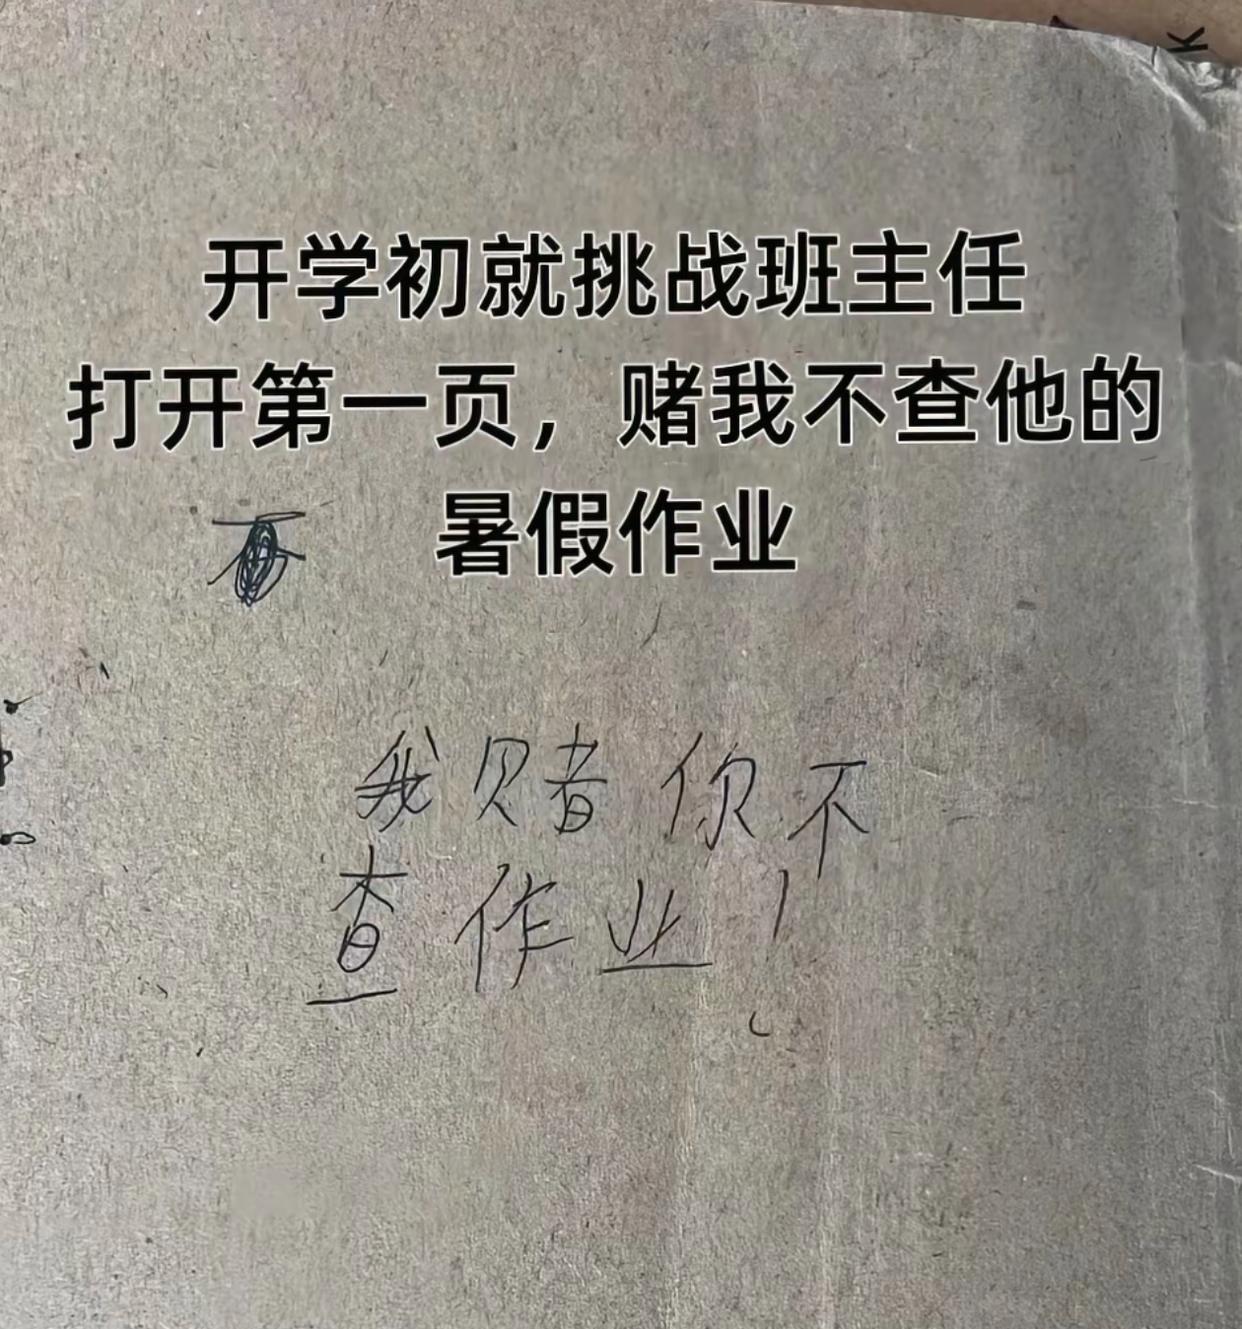 开学初就挑战班主任
打开第一页，赌我不查他的
暑假作业
我赌你不
查作业！